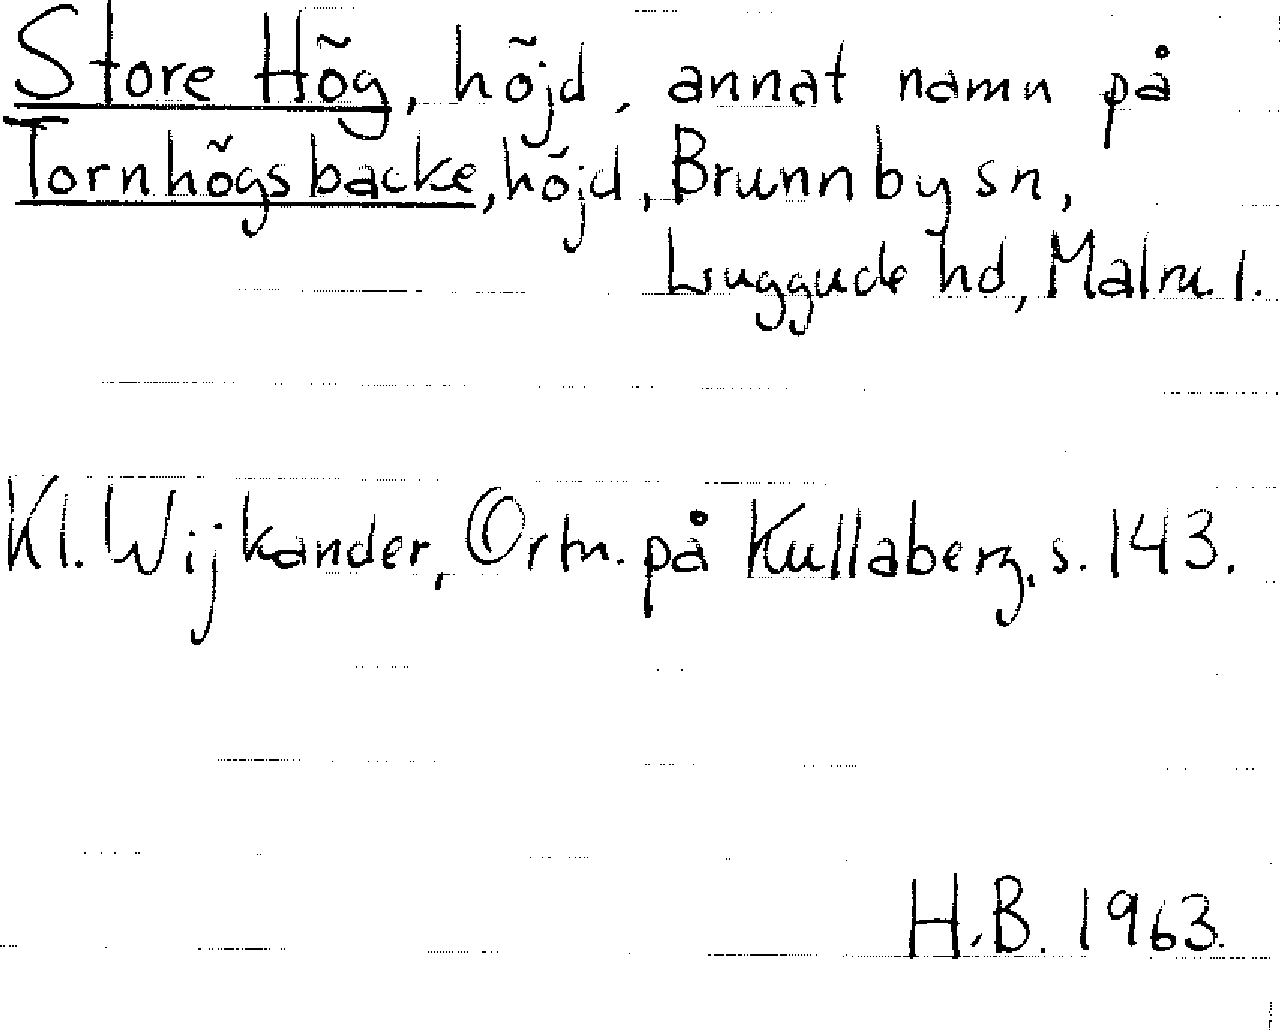 Store Hög, höjd, annat namn på
Tornhögsbacke, höjd, Brunnby sn,
Luggude hd, Malm. l.
Kl. Wijkander, Ortn. på Kullaberg, s. 143.
H.B. 1963.